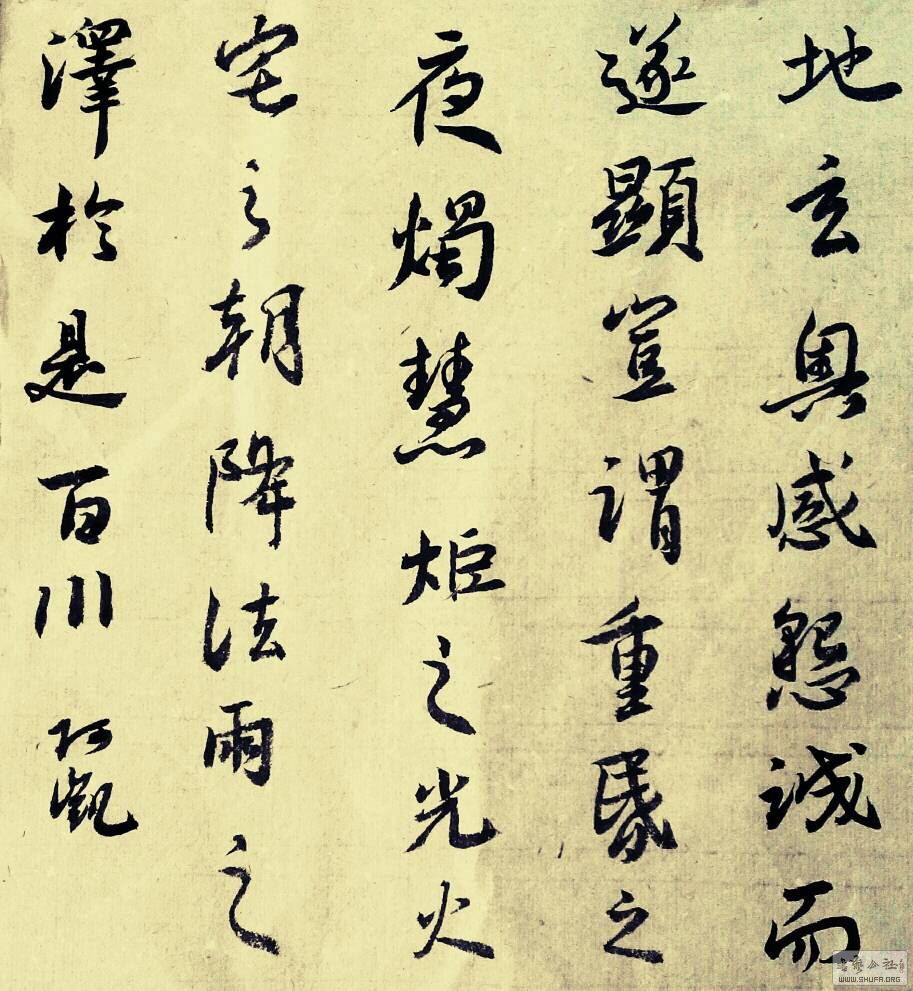 地玄奧感懇誠而
遂顯豈謂重昏之
夜燭慧炬之光火
宅之朝降法雨之
澤於是百川
WWW.SHUFA.ORG